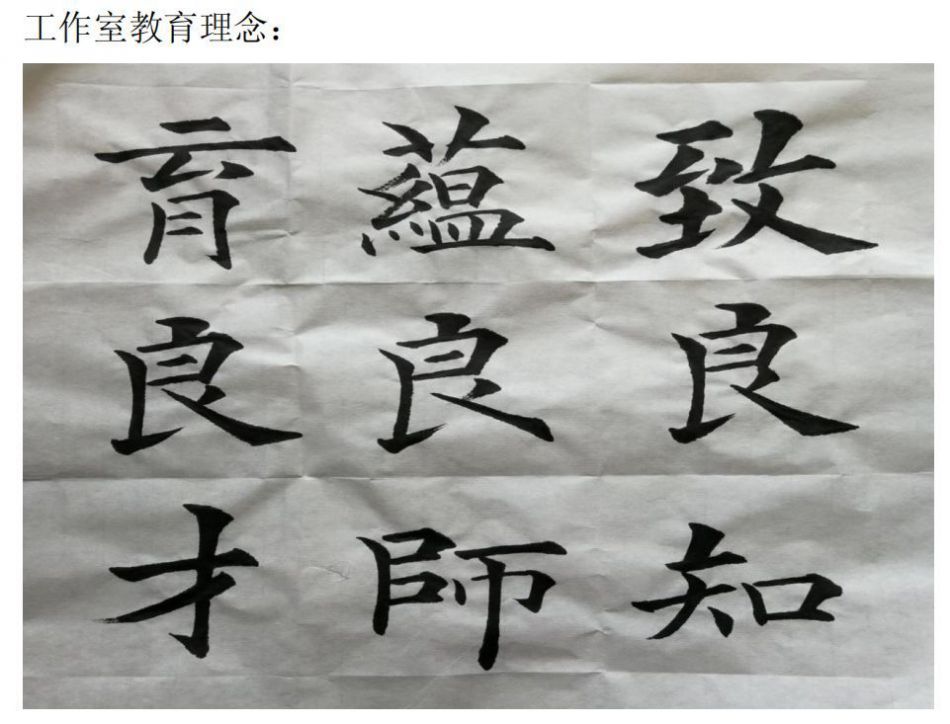 工作室教育理念：
致良知
蘊良師
育良才